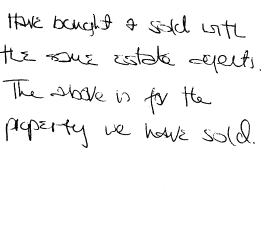 Have bought & sold with
the same estate agents.
The above is for the
property we have sold.